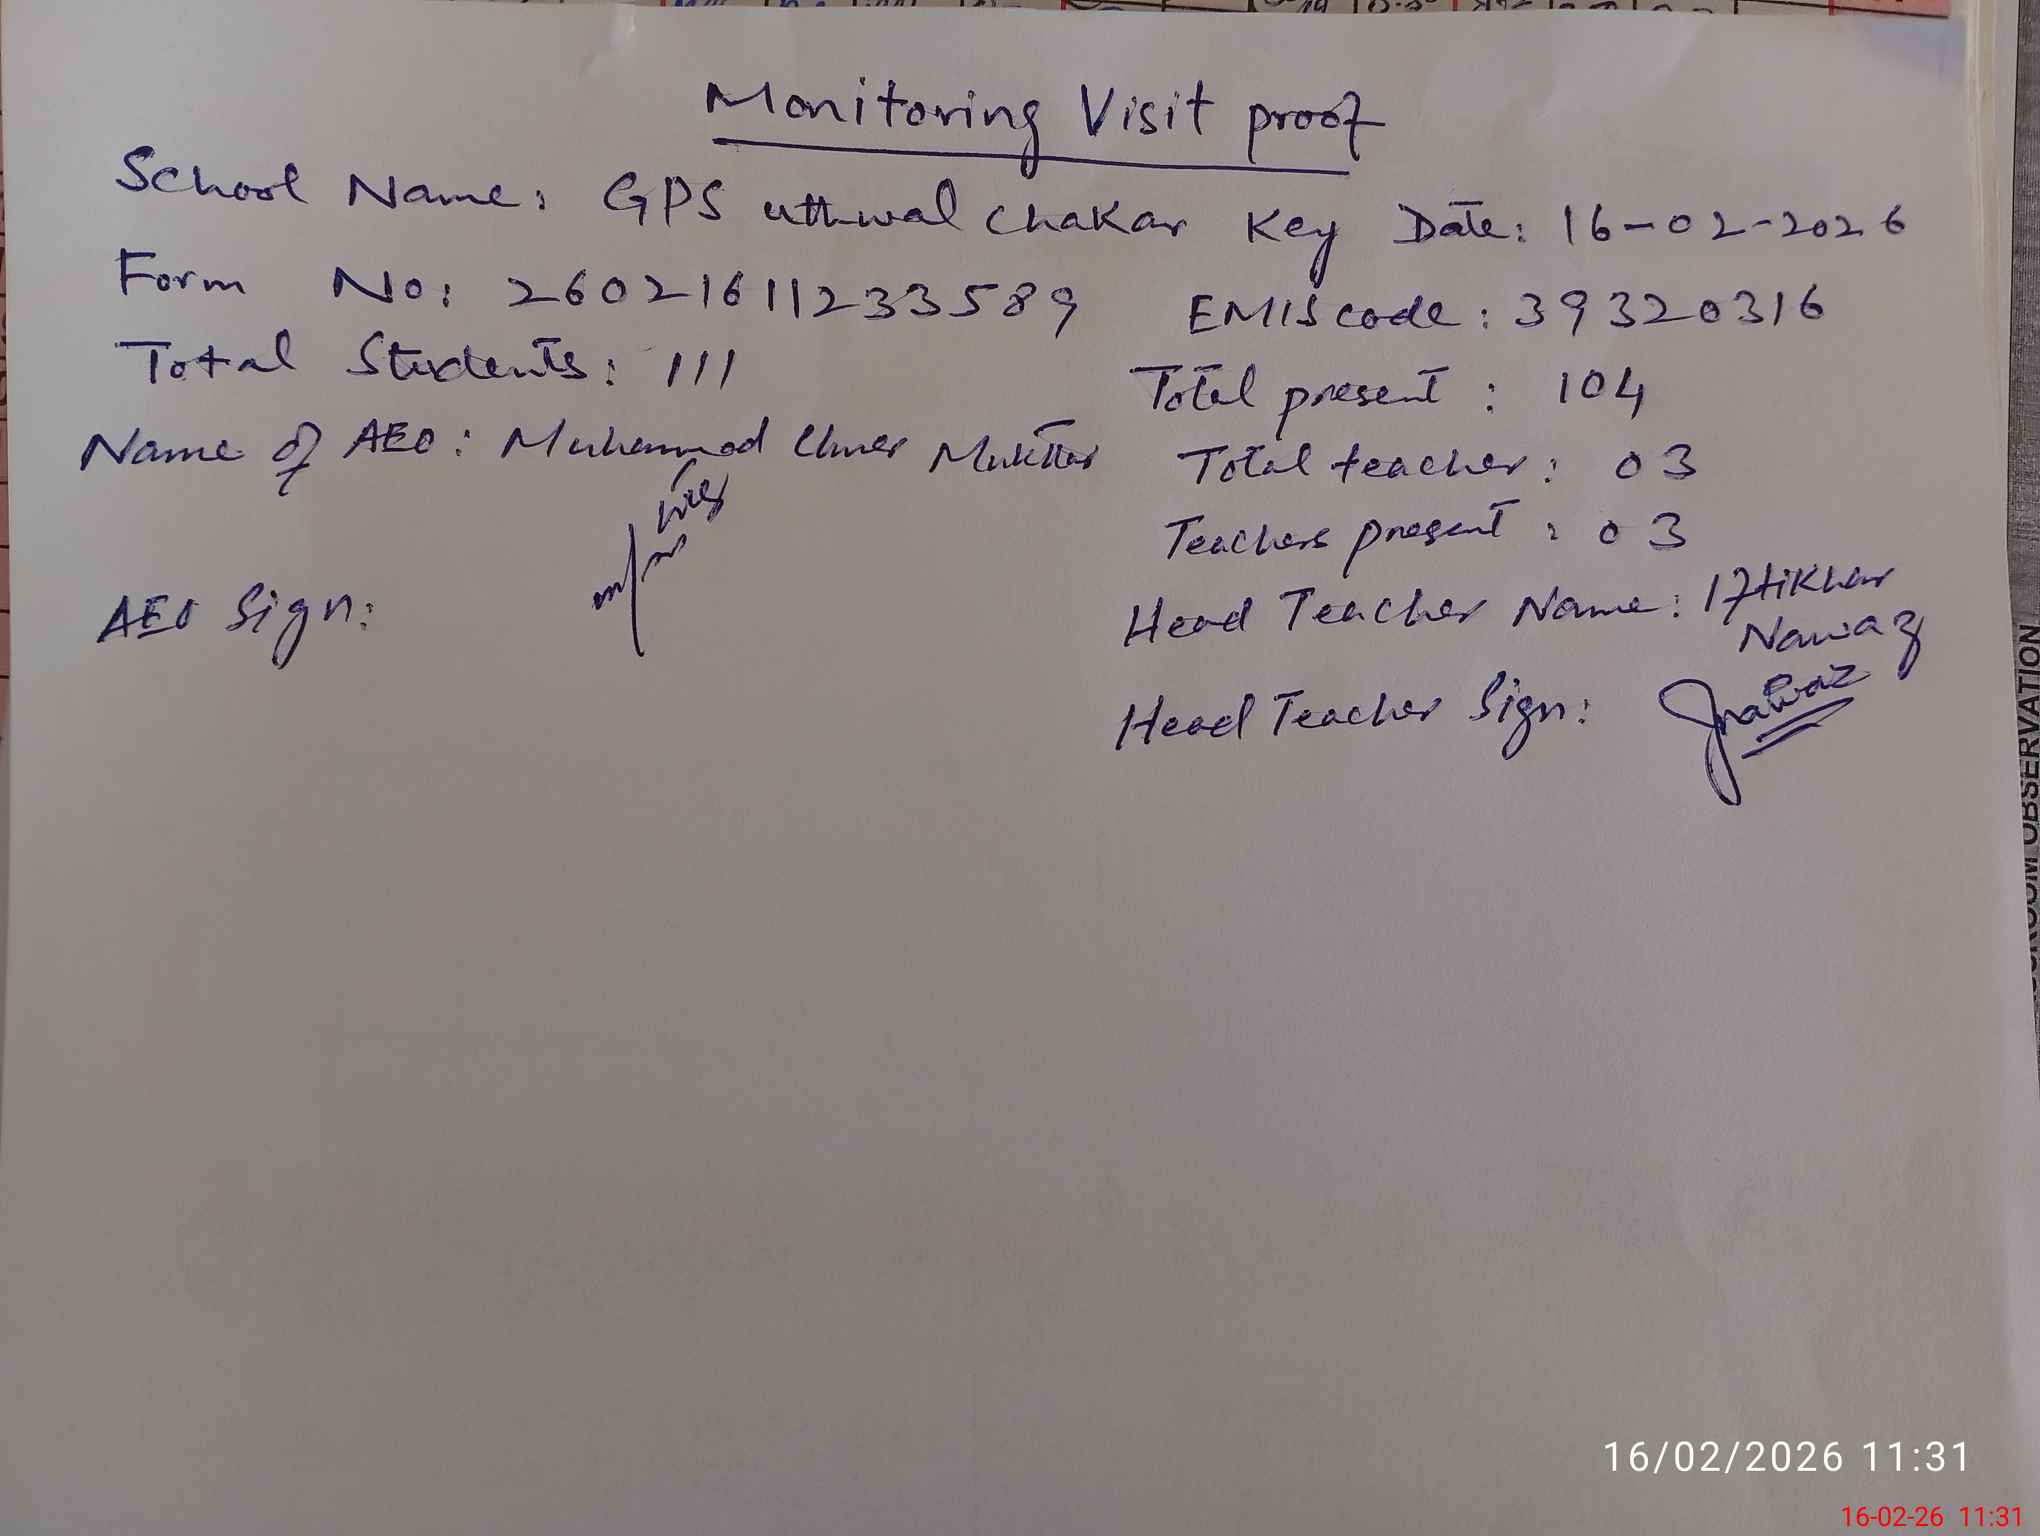 Monitoring Visit proof
School Name: GPS uthwal Chakar Key Date: 16-02-2026
Form No: 26021611233589 EMIS code: 39320316
Total Students: 111
Total present: 104
Name of AEO: Muhammad Umer Mukhtar
Total teacher: 03
Teachers present: 03
AEO Sign:
Head Teacher Name: Iftikhar
Nawaz
Head Teacher Sign: Jnawaz
OBSERVATION
16/02/2026 11:31
16-02-26 11:31